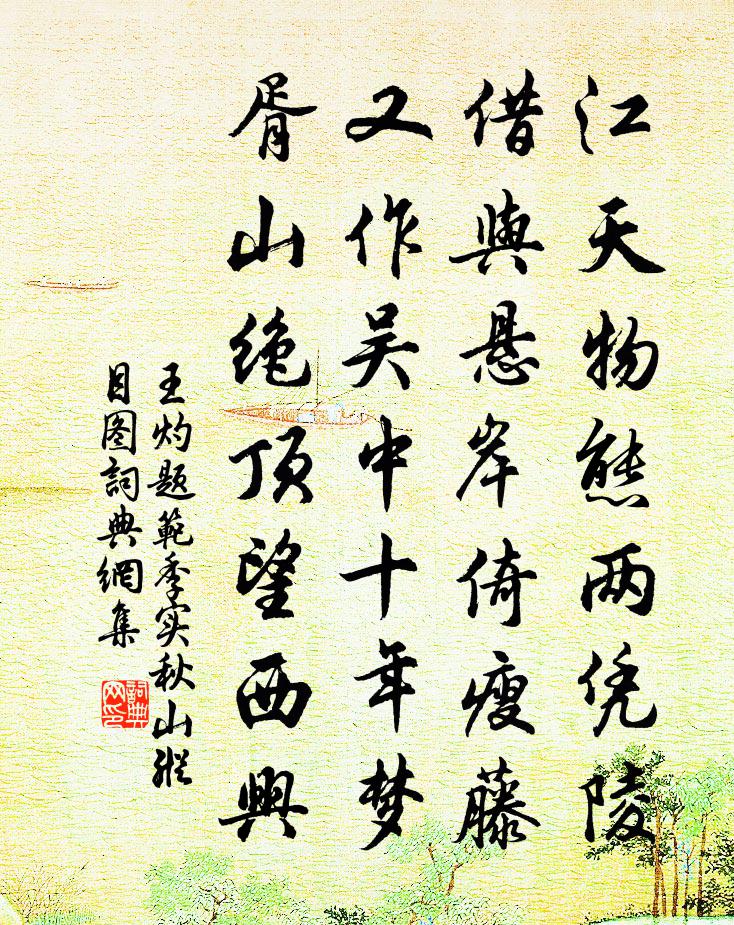 江天物态两凭陵
借与悬岸倚瘦藤
又作吴中十年梦
胥山绝顶望西興
王灼题範季实秋山縱
目图詞典網集
詞典网印